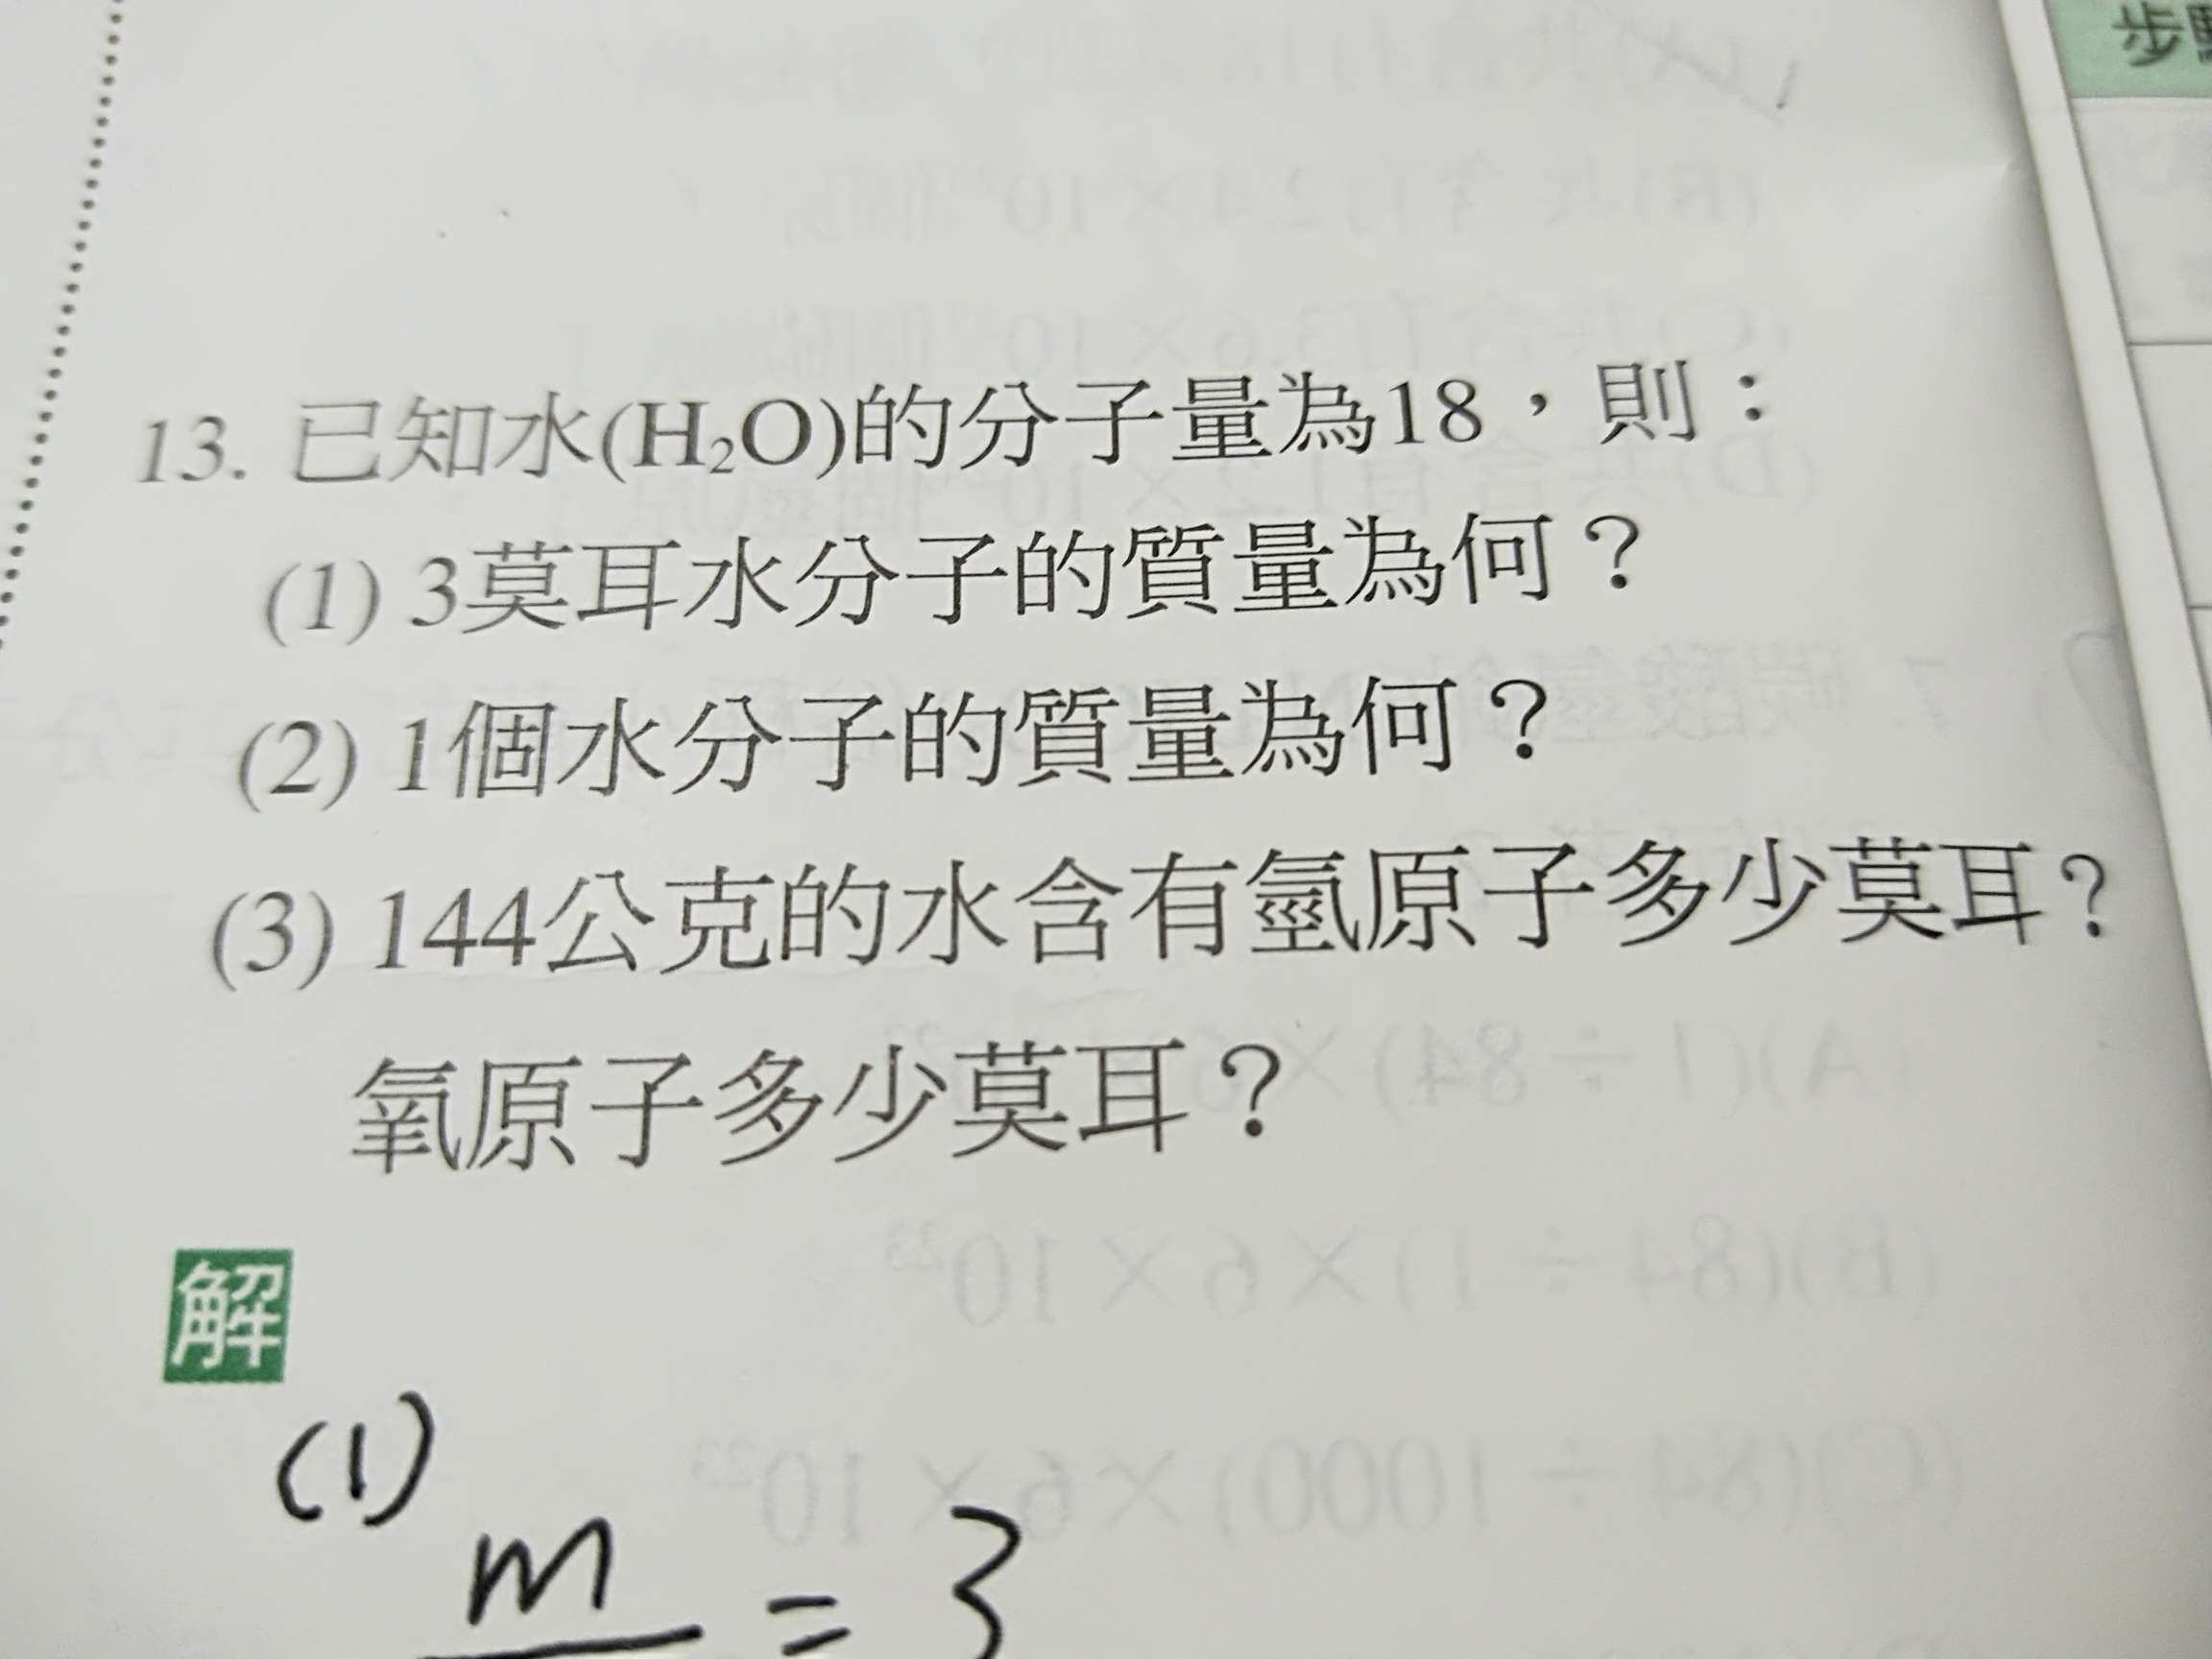 步
13. 已知水(H₂O)的分子量為18，則：
(1) 3莫耳水分子的質量為何？
(2) 1個水分子的質量為何？
(3) 144公克的水含有氫原子多少莫耳？
氧原子多少莫耳？
解
(1)
m = 3